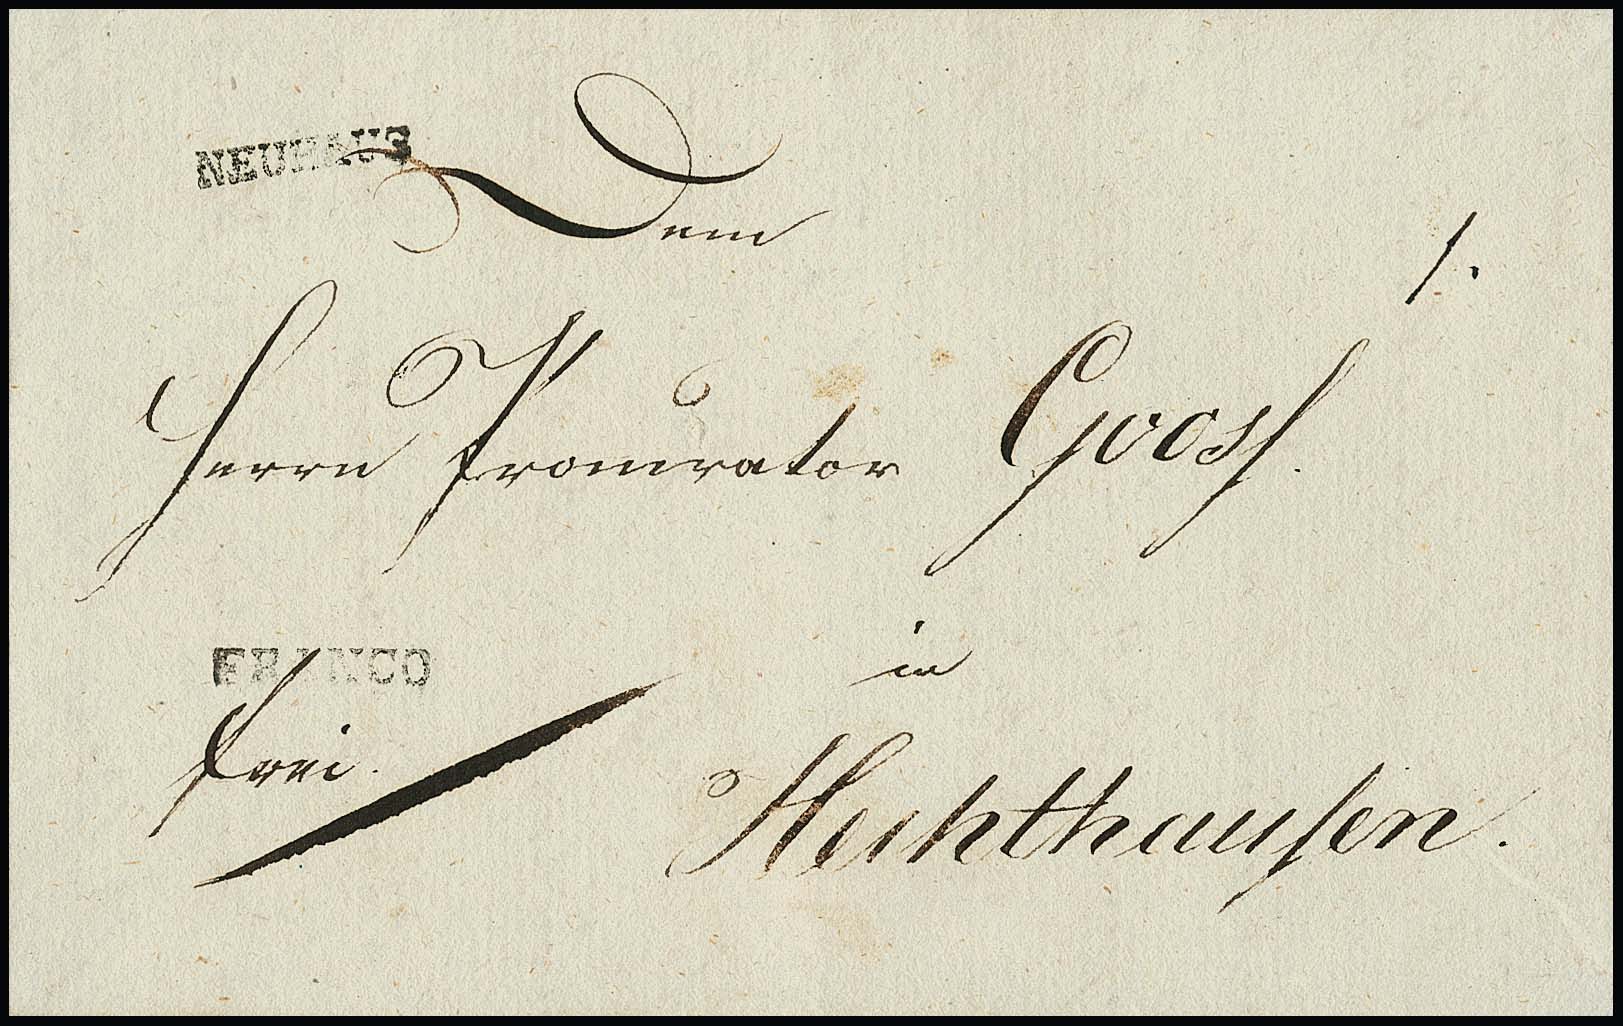 NEUHAUS
Dem
1.
Herrn Procurator Gooss.
FRANCO
in
frei.
Hechthausen.